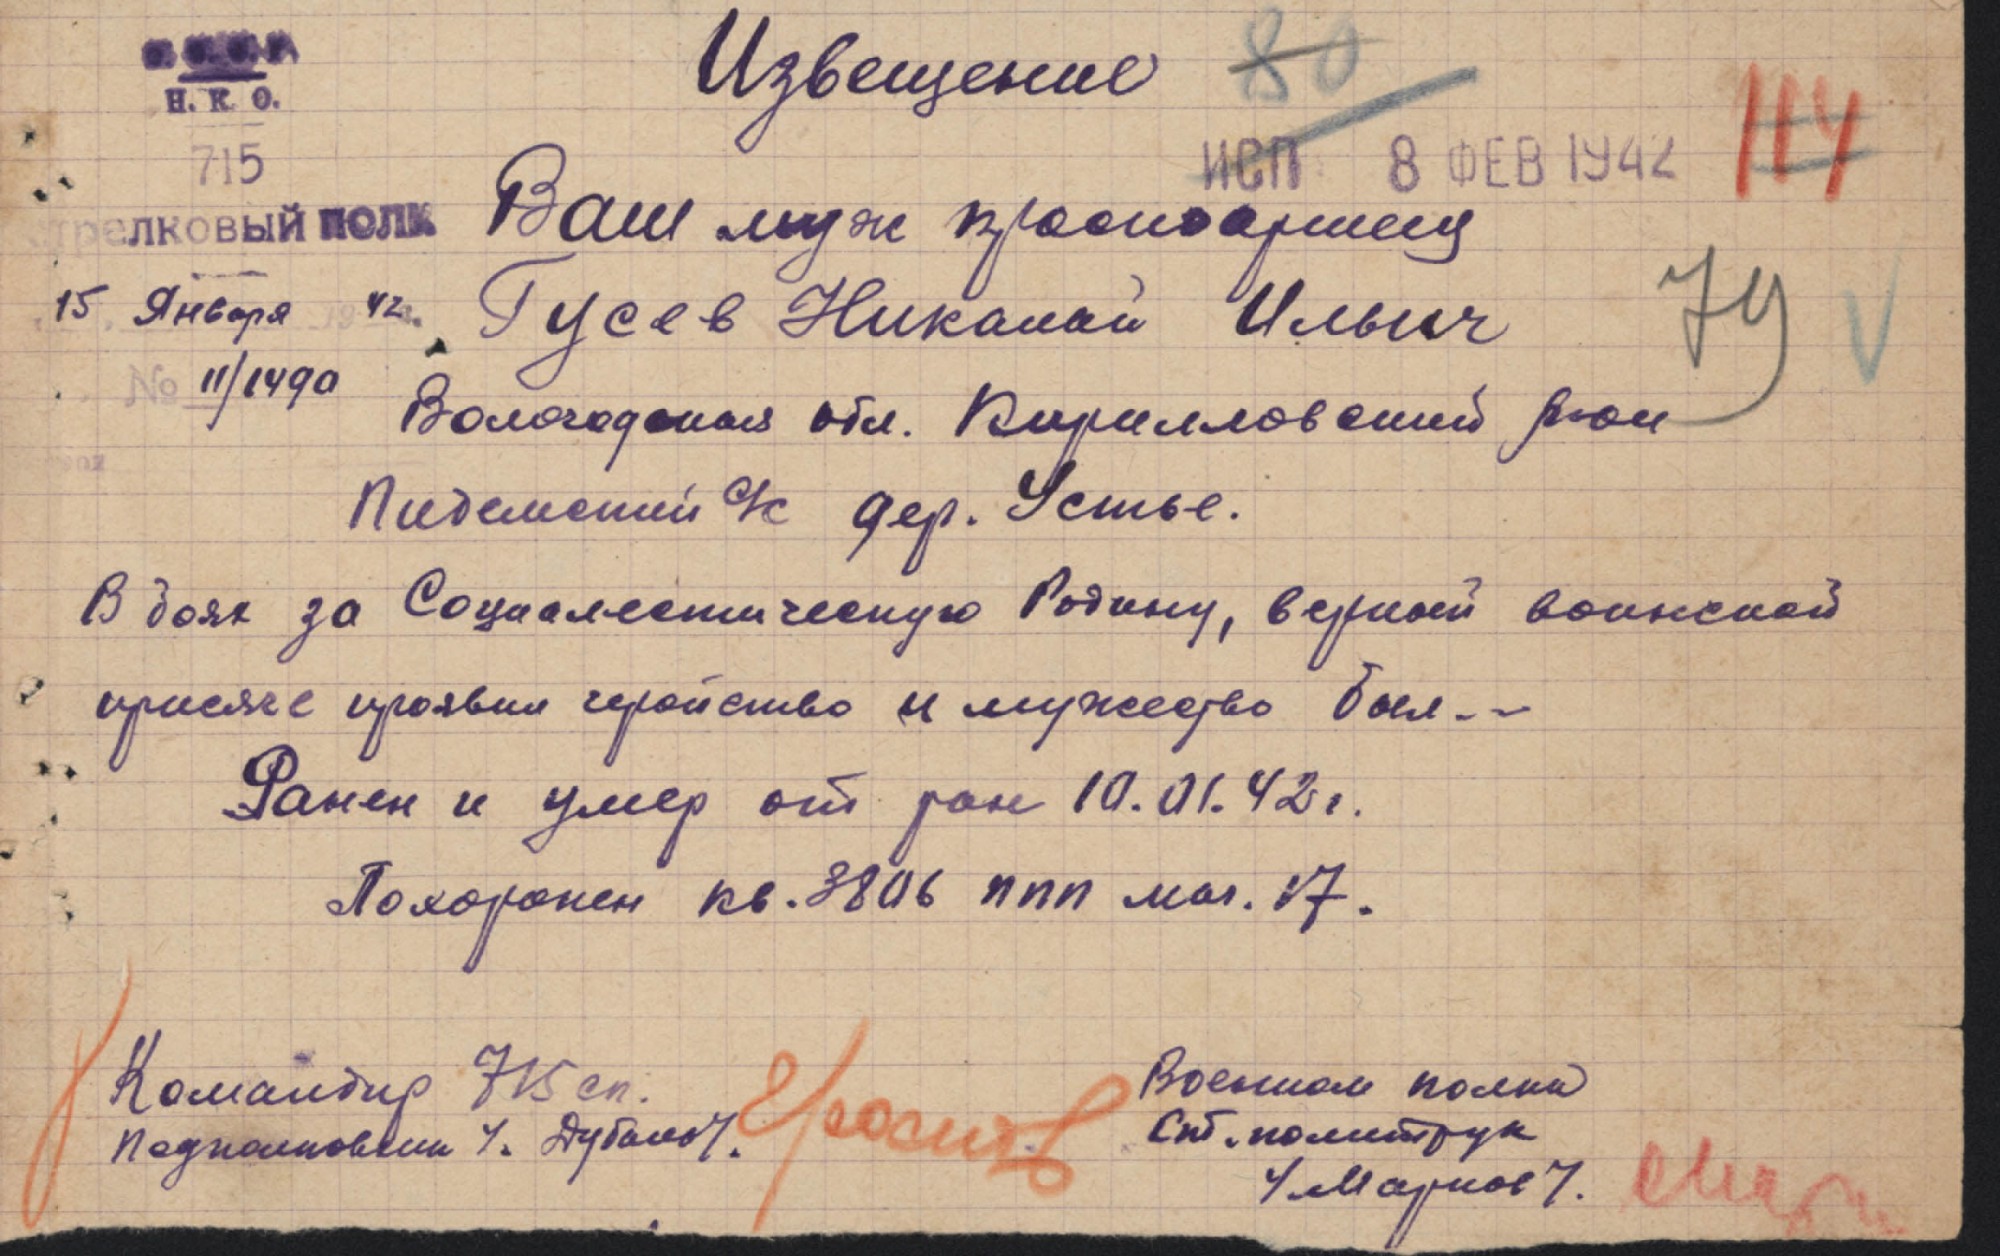 С.С.С.Р.
Н. К. О.
715
стрелковый полк
15 Января 42
№ 11/1490
Извещение
80
114
ИСП 8 ФЕВ 1942
Ваш муж красноармеец
Гусев Николай Ильич
79
Вологодская обл. Кирилловский р-он
Пидемский с/с дер. Устье.
В боях за Социалистическую Родину, верный воинской
присяге проявил геройство и мужество был --
Ранен и умер от ран 10.01.42 г.
Похоронен кв. 3806 ППП мог. 17.
Командир 715 сп.
Подполковник /. Дубалов/.
Военком полка
Ст. политрук
/Марков/.